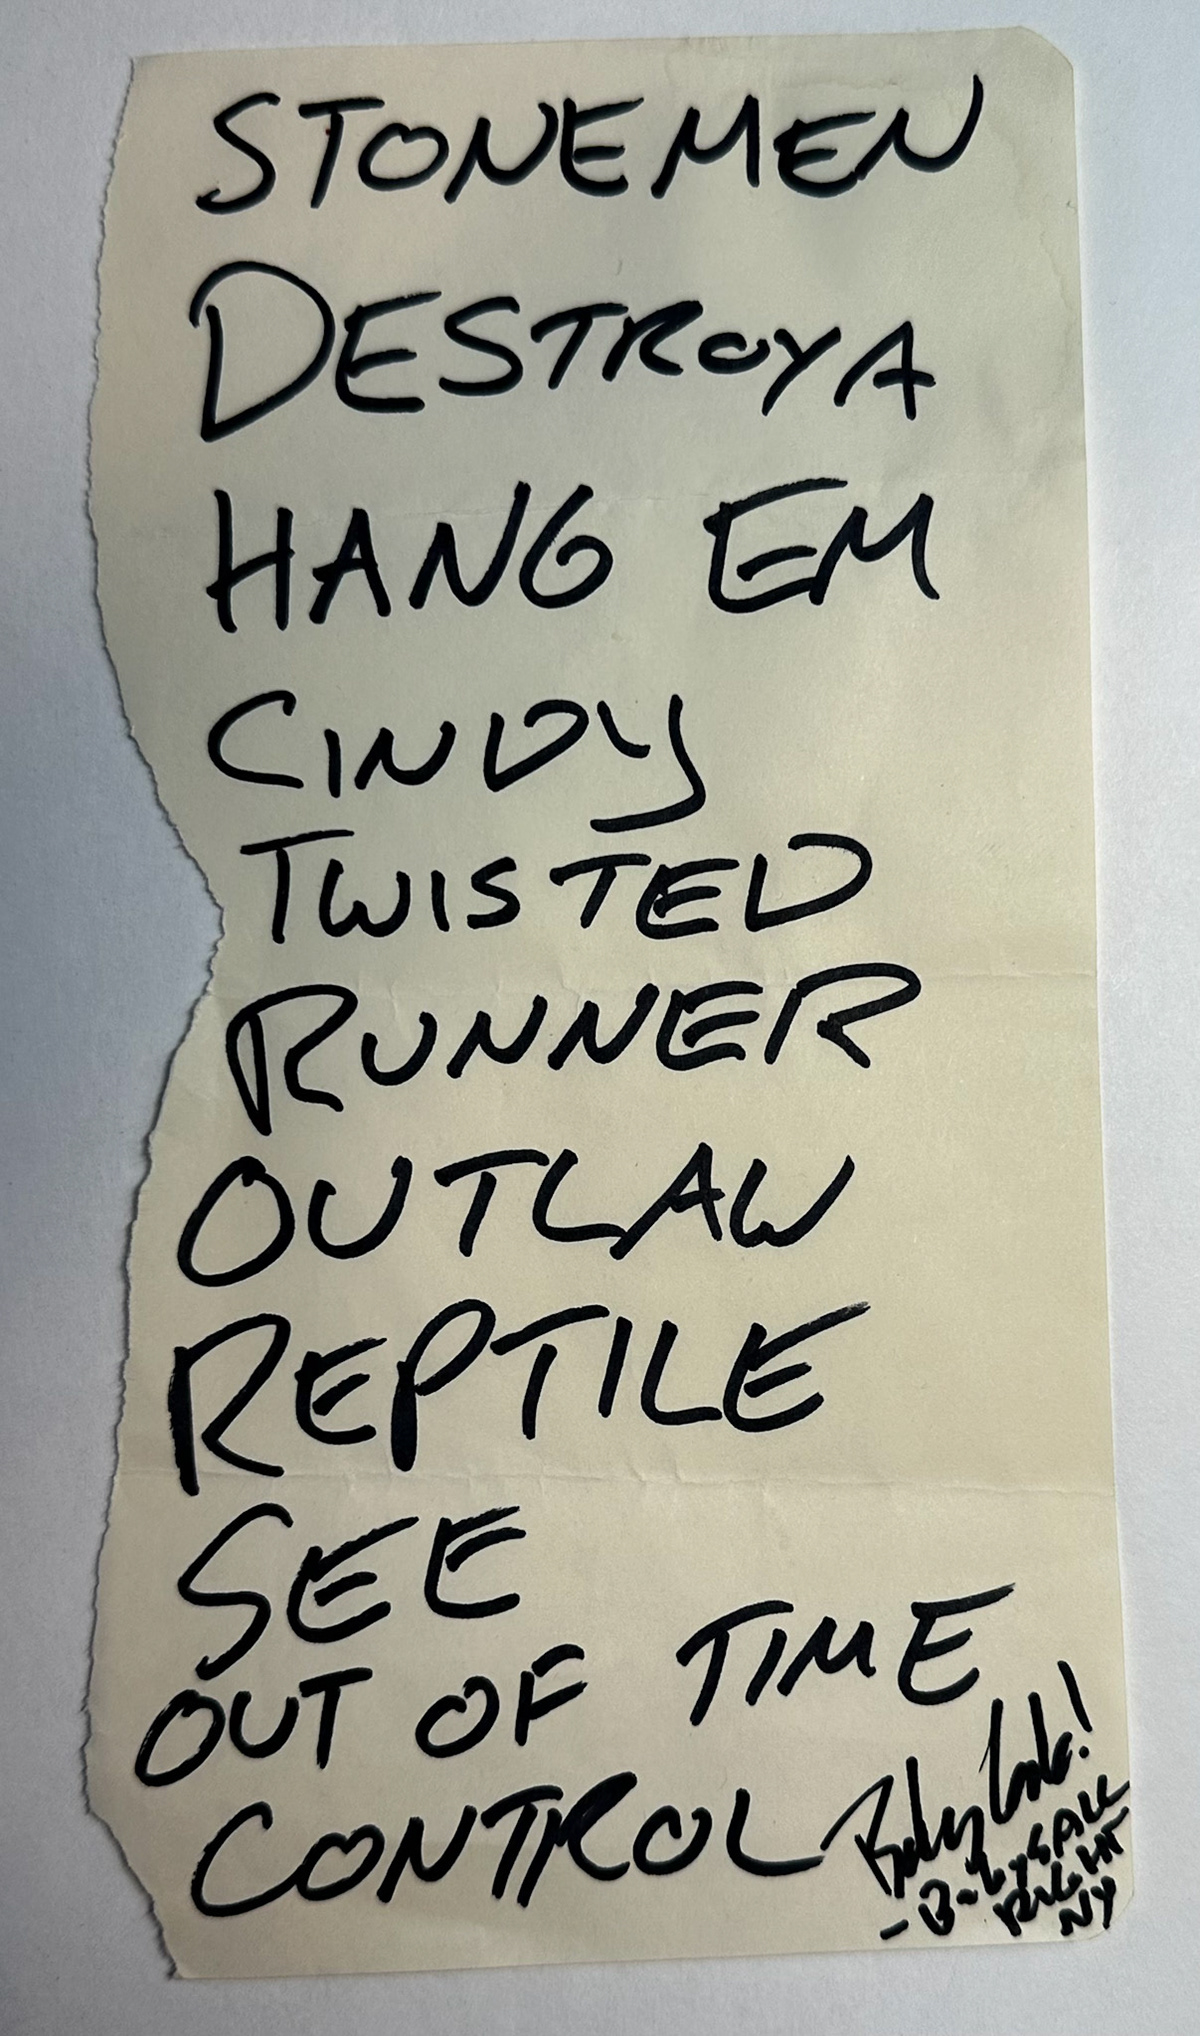 STONEMEN
DESTROYA
HANG EM
CINDY
TWISTED
RUNNER
OUTLAW
REPTILE
SEE
OUT OF TIME
CONTROL
ALL
RIGHT
NY